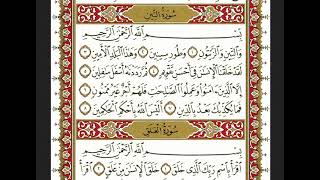 سُورَةُ التِّينِ
بِسْمِ اللَّهِ الرَّحْمَٰنِ الرَّحِيمِ
وَالتِّينِ وَالزَّيْتُونِ ١ وَطُورِ سِينِينَ ٢ وَهَٰذَا الْبَلَدِ الْأَمِينِ ٣
لَقَدْ خَلَقْنَا الْإِنسَٰنَ فِي أَحْسَنِ تَقْوِيمٍ ٤ ثُمَّ رَدَدْنَٰهُ أَسْفَلَ سَٰفِلِينَ ٥
إِلَّا الَّذِينَ ءَامَنُوا وَعَمِلُوا الصَّٰلِحَٰتِ فَلَهُمْ أَجْرٌ غَيْرُ مَمْنُونٍ ٦
فَمَا يُكَذِّبُكَ بَعْدُ بِالدِّينِ ٧ أَلَيْسَ اللَّهُ بِأَحْكَمِ الْحَٰكِمِينَ ٨
سُورَةُ الْعَلَقِ
بِسْمِ اللَّهِ الرَّحْمَٰنِ الرَّحِيمِ
اقْرَأْ بِاسْمِ رَبِّكَ الَّذِي خَلَقَ ١ خَلَقَ الْإِنسَٰنَ مِنْ عَلَقٍ ٢